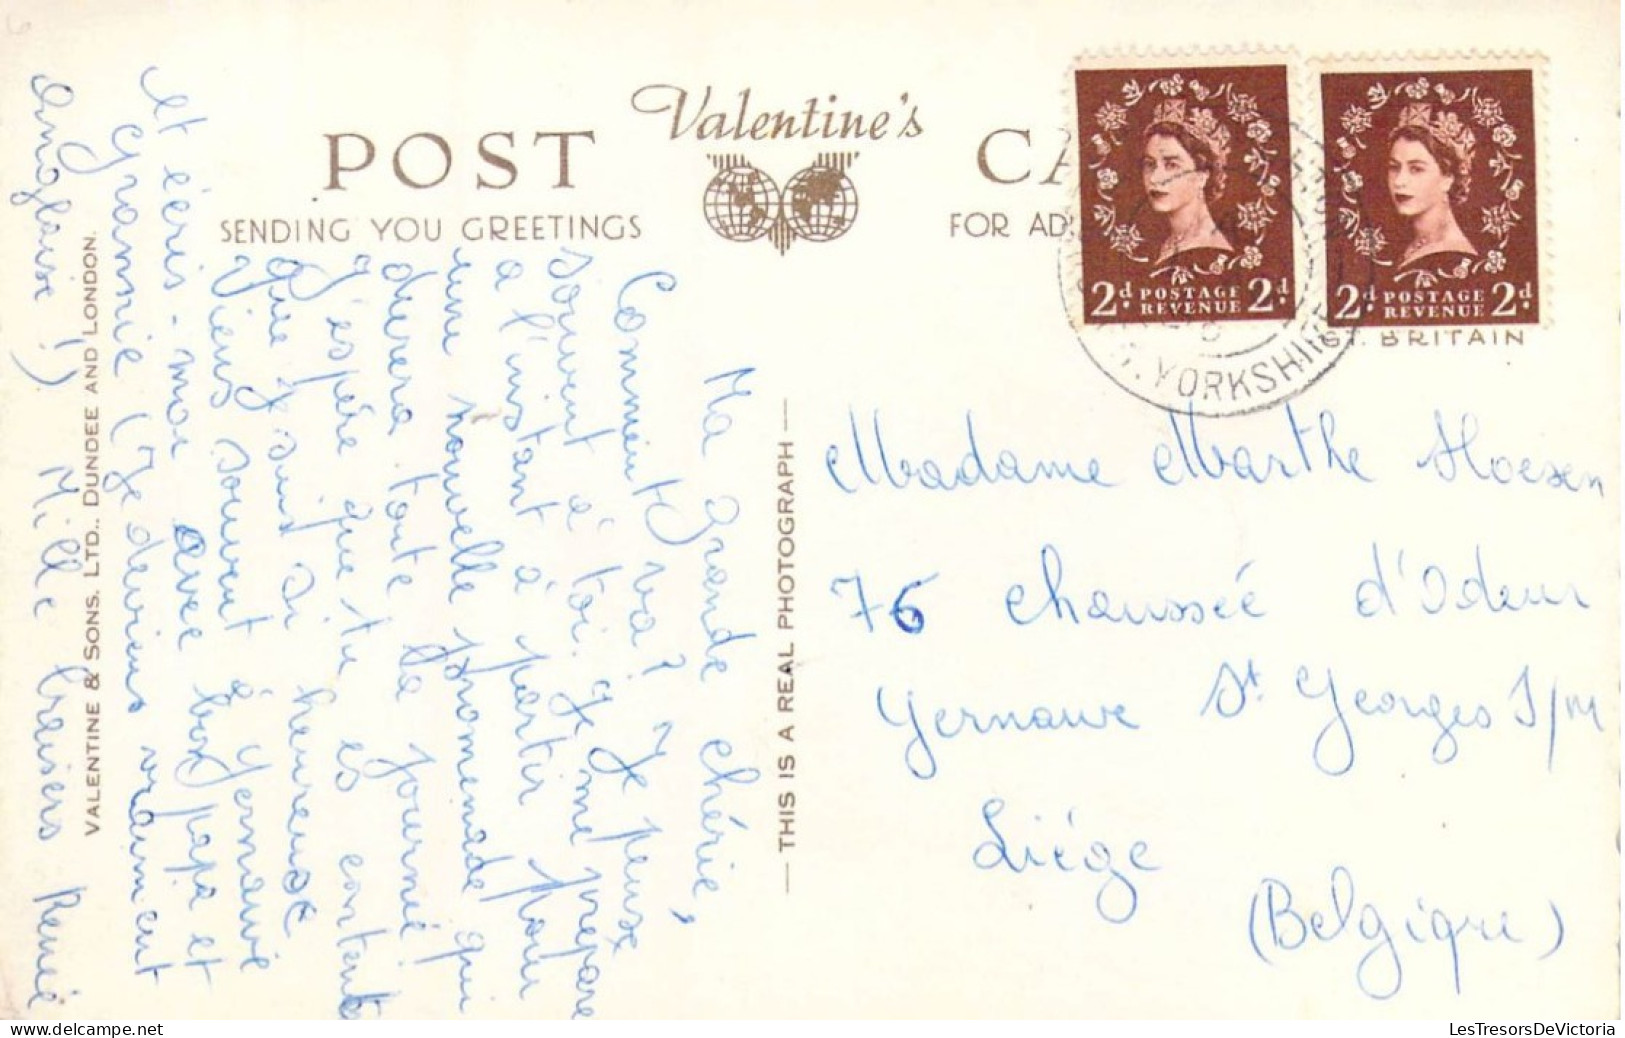 Valentine's
POST CA
SENDING YOU GREETINGS
FOR AD
2d POSTAGE REVENUE 2d
2d POSTAGE REVENUE 2d
YORKSHIRE
GT. BRITAIN
Ma grande chérie,
Comment va? Je pense
souvent à toi. Je me prépare
a l'instant à partir pour
une nouvelle promenade qui
durera toute la journée
J'espère que tu es contente
que je suis si heureuse
Viens souvent à Yernawe
et écris-moi avec bon papa et
Grannie (Je deviens vraiment
Anglaise!) Mille baisers Renée
VALENTINE & SONS, LTD., DUNDEE AND LONDON.
THIS IS A REAL PHOTOGRAPH
Madame Marthe Hoesen
76 chaussée d'Odeur
Yernawe St Georges S/M
Liége
(Belgique)
LesTresorsDeVictoria
www.delcampe.net